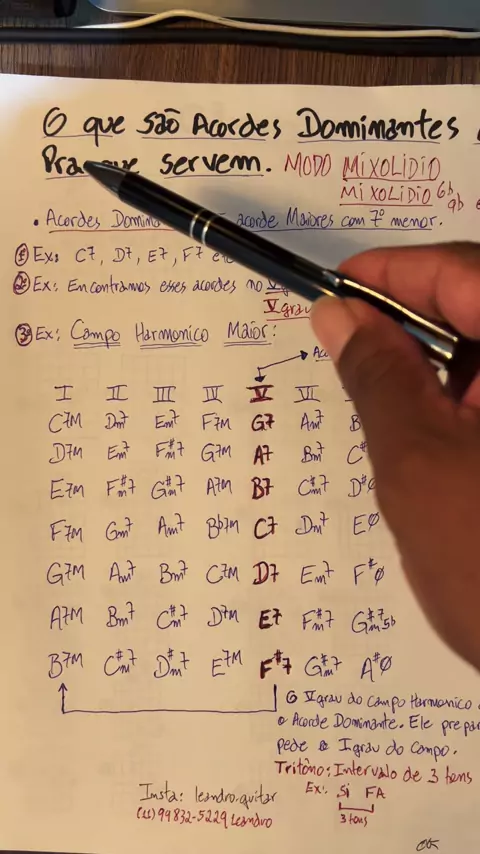 O que são Acordes Dominantes
Pra que servem. MODO MIXOLIDIO
MIXOLIDIO 6b
9b
• Acordes acorde Maiores com 7º menor.
① Ex: C7, D7, E7, F7
② Ex: Encontramos esses acordes no V
V grau
③ Ex: Campo Harmonico Maior:
I II III IV V VI
C7M Dm7 Em7 F7M G7 Am7 B
D7M Em7 F#m7 G7M A7 Bm7 C#
E7M F#m7 G#m7 A7M B7 C#m7 D#ø
F7M Gm7 Am7 Bb7M C7 Dm7 Eø
G7M Am7 Bm7 C7M D7 Em7 F#ø
A7M Bm7 C#m7 D7M E7 F#m7 G#m7 5b
B7M C#m7 D#m7 E7M F#7 G#m7 A#ø
O V grau do campo Harmonico
o Acorde Dominante. Ele prepa
pede o I grau do Campo.
Tritôno: Intervalo de 3 tons
Ex: Si FA
3 tons
Insta: leandro.guitar
(11) 99832-5229 Leandro